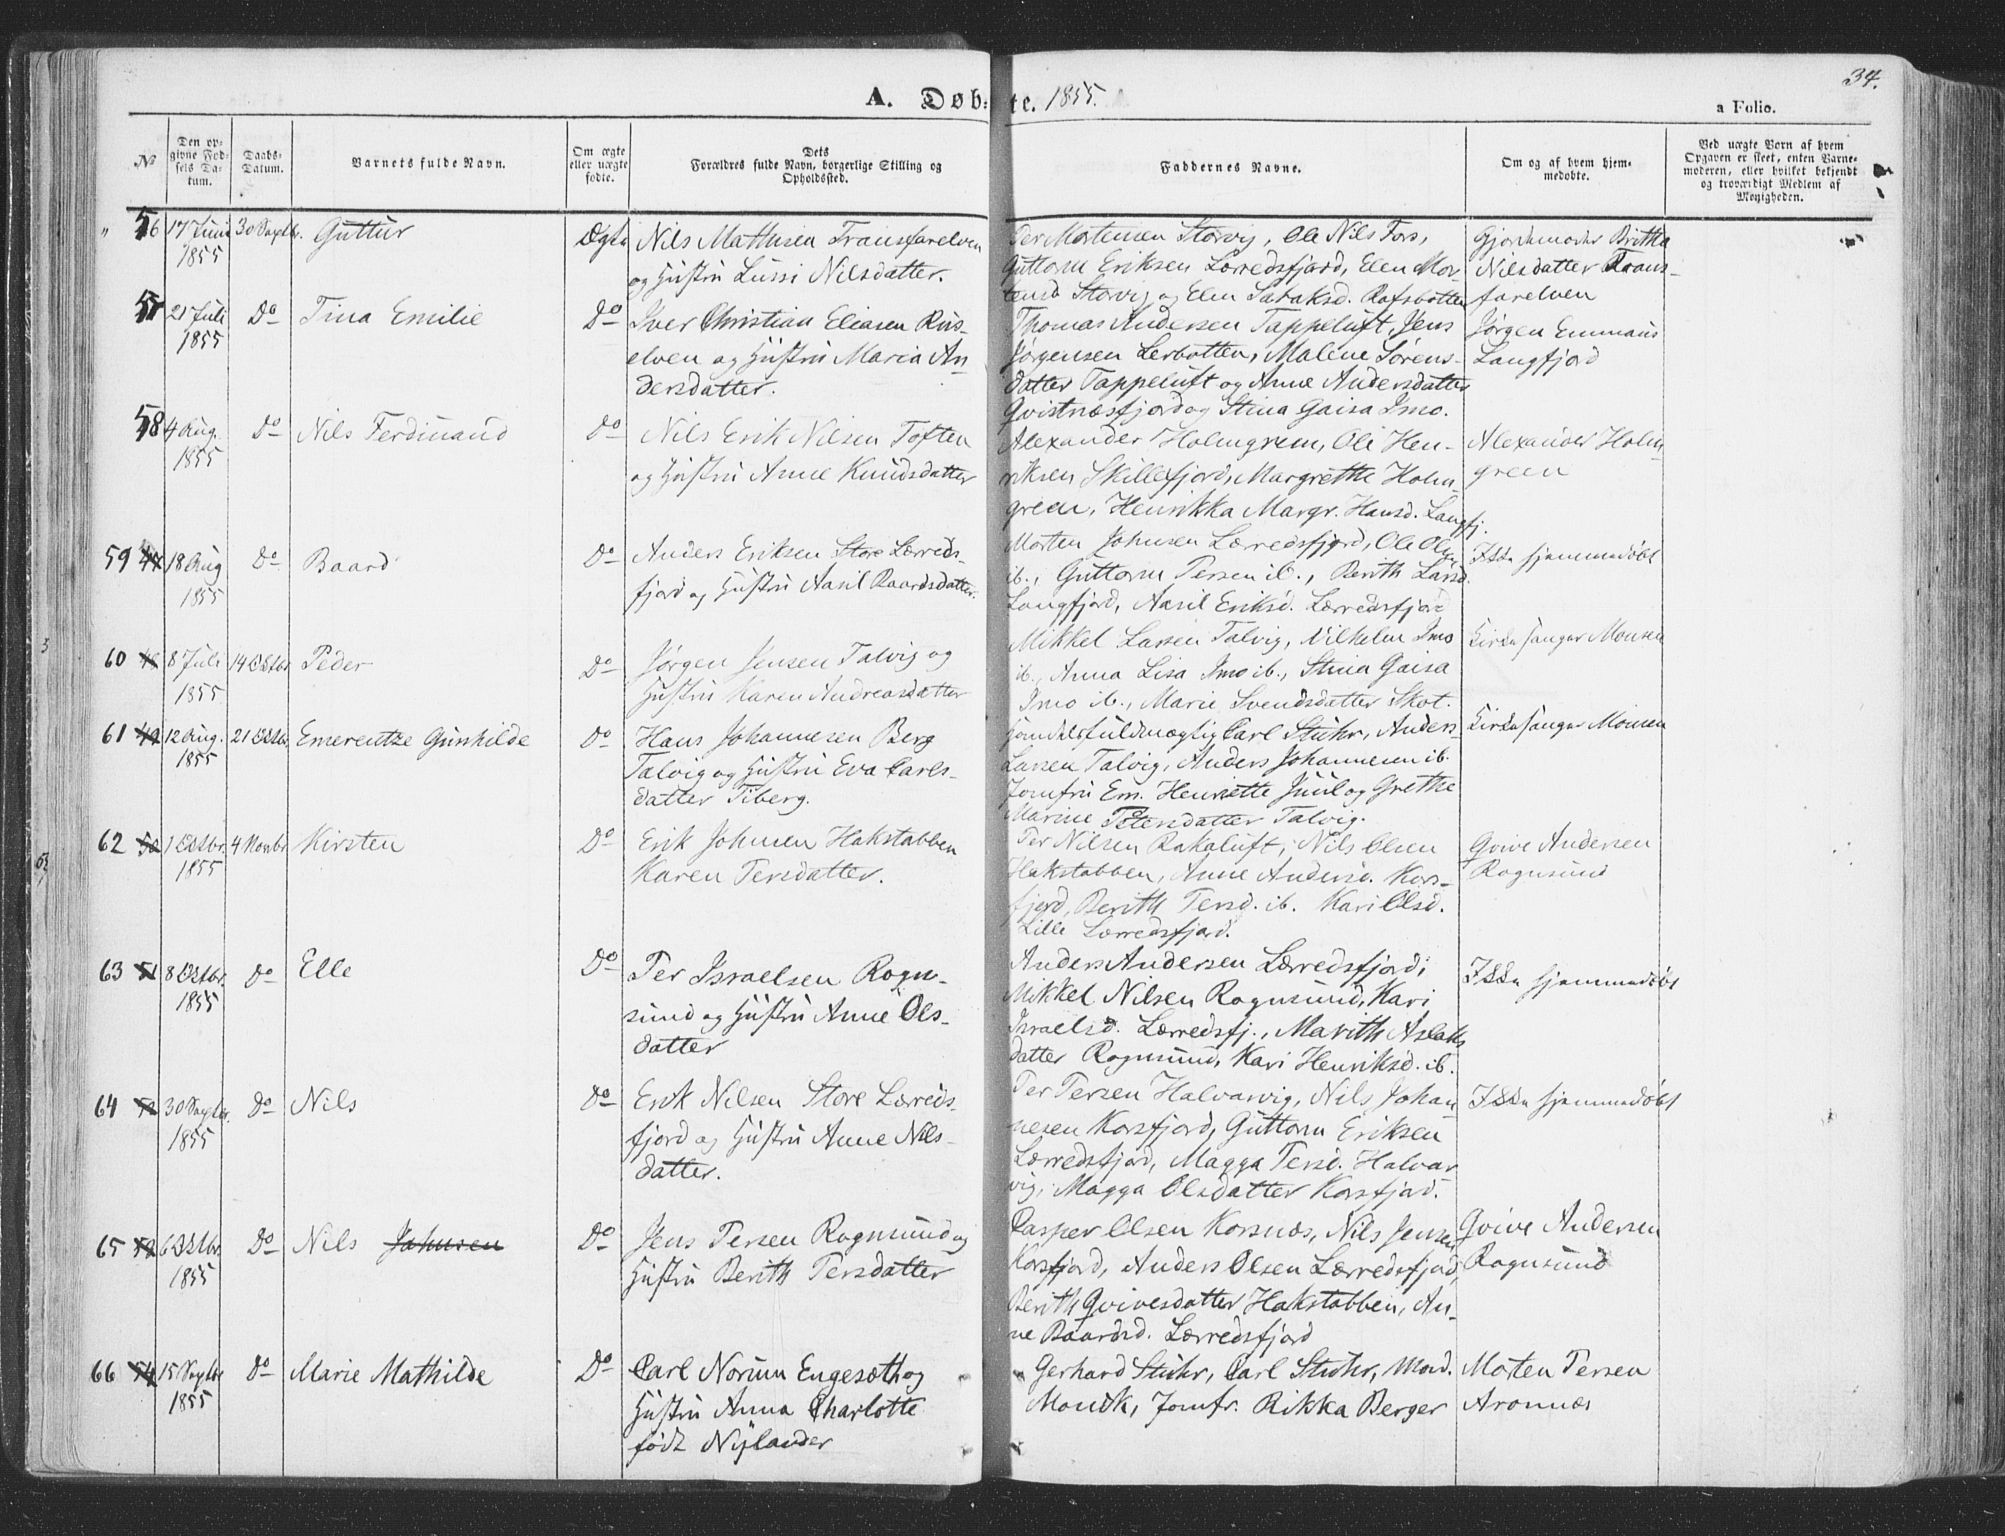 A. Døb-te. 1855.
34.
a Folio.
No
Den op-
givne Fød-
sels Da-
tum.
Daabs-
Datum.
Barnets fulde Navn.
Om ægte
eller uægte
fødte.
Dets
Forældres fulde Navn, borgerlige Stilling og
Opholdssted.
Faddernes Navne.
Om og af hvem hjem-
medøbte.
Ved uægte Børn af hvem
Opgaven er skeet, enten Barne-
moderen, eller hvilket bekjendt
og troværdigt Medlem af
Menigheden.
56 17 Juni 1855 30 Septbr. Guttur Ægte
Nils Mathisen Transfarelven
og Hustru Lussi Nilsdatter.
Per Mortensen Storvig, Ole Nils Fors,
Guttorm Eriksen Lerredsfjord, Elen Mor-
tensd. Storvig og Elen Sabaksd. Rafsbotten
Gjordemoder Brittha
Nilsdatter Trans-
farelven
57 21 Juli 1855 Do Tina Emilie Do
Iver Christian Eliasen Rus-
elven og Hustru Maria An-
dersdatter.
Thomas Andersen Tappeluft, Jens
Jørgensen Lerbotten, Malene Sørens-
datter Tappeluft og Anne Andersdatter
Qvistnæsfjord og Stina Gaisa Imo.
Jørgen Emmaus
Langfjord
58 4 Aug. 1855 Do Nils Ferdinand Do
Nils Erik Nilsen Toften
og Hustru Anne Knudsdatter
Alexander Holmgreen, Ole Hen-
riksen Skillefjord, Margrethe Holm-
green, Henrikka Margr. Hansd. Langfj.
Alexander Holm-
green
59 18 Aug 1855 Do Baard Do
Anders Eriksen Store Lerreds-
fjord og Hustru Aasil Baardsdatter.
Morten Johnsen Lerredsfjord, Ole Olsen
ib., Guttorm Persen ib., Berith Larsd.
Langfjord, Aasil Eriksd. Lerredsfjord
Ikke hjemmedøbt
60 8 Juli 1855 14 Octbr Peder Do
Jørgen Jensen Talvig og
Hustru Karen Andreasdatter
Mikkel Larsen Talvig, Vilhelm Imo
ib., Anna Lisa Imo ib., Stina Gaisa
Imo ib., Marie Svendsdatter Skot.
Kirkesanger Monsen
61 12 Aug. 1855 21 Octbr. Emerentze Gunhilde Do
Hans Johannesen Berg
Talvig og Hustru Eva Carls-
datter Tiberg.
Handelsfuldmægtig Carl Stuhr, Anders
Larsen Talvig, Anders Johannesen ib.
Jomfru Em. Henriette Juul og Grethe
Marine Petersdatter Talvig.
Kirkesanger Monsen
62 1 Octbr. 1855 4 Novbr Kirsten Do
Erik Johnsen Hakstabben
Karen Persdatter.
Per Nilsen Rakaluft, Nils Olsen
Hakstabben, Anne Andersd. Kors-
fjord, Berith Persd. ib. Kari Olsd.
Lille Lerredsfjord.
Qvive Andersen
Rognsund
63 8 Octbr. 1855 Do Elle Do
Per Israelsen Rogn-
sund og Hustru Anne Ols-
datter
Anders Andersen Lerredsfjord,
Mikkel Nilsen Rognsund, Kari
Israelsd. Lerredsfj., Marith Aslaks
datter Rognsund, Kari Henriksd. ib.
Ikke hjemmedøbt
64 30 Septbr. 1855 Do Nils Do
Erik Nilsen Store Lerreds-
fjord og Hustru Anne Nils-
datter.
Per Persen Halvarvig, Nils Johan-
nesen Korsfjord, Guttorm Eriksen
Lerredsfjord, Magga Persd. Halvar
vig, Magga Olsdatter Korsfjord.
Ikke hjemmedøbt
65 6 Octbr. 1855 Do Nils Johnsen Do
Jens Persen Rognsund og
Hustru Berith Persdatter
Casper Olsen Korsnæs, Nils Jensen
Korsfjord, Anders Olsen Lerredsfjord,
Berith Qvivesdatter Hakstabben, An-
ne Baardsd. Lerredsfjord
Qvive Andersen
Rognsund
66 54 15 Septbr 1855 Do Marie Mathilde Do
Carl Norum Engesæth og
Hustru Anna Charlotte
født Nylander
Gerhard Stuhr, Carl Stuhr, Mad.
Monsk, Jomfr. Rikka Berger
Morten Persen
Aronnæs